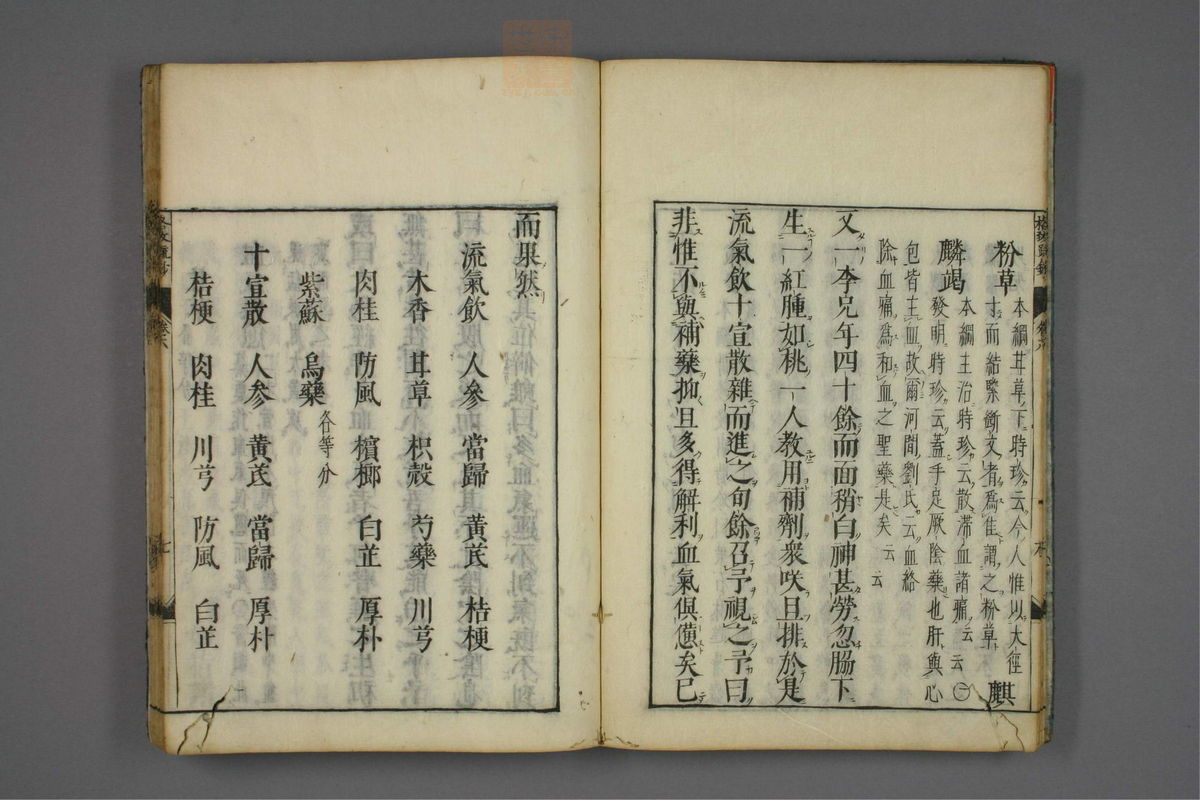 粉草 本綱甘草ノ下時珍云今人惟以大徑
寸而結緊斷文者爲佳謂之粉草 麒
麟竭 本綱主治時珍云散滯血諸痛云云〇
發明時珍云蓋手足厥陰藥也肝與心
包皆主血故爾河間劉氏云血竭
除血痛爲和血之聖藥是矣云云
又一李兄年四十餘而面稍白神甚勞忽脇下
生一紅腫如桃一人教用補劑衆咲且排於是
流氣飲十宣散雜而進之旬餘召予視之予曰
非惟不與補藥抑且多得解利血氣俱憊矣已
而果然
流氣飲 人參 當歸 黃芪 桔梗
木香 甘草 枳殼 芍藥 川芎
肉桂 防風 檳榔 白芷 厚朴
紫蘇 烏藥 各等分
十宣散 人參 黃芪 當歸 厚朴
桔梗 肉桂 川芎 防風 白芷